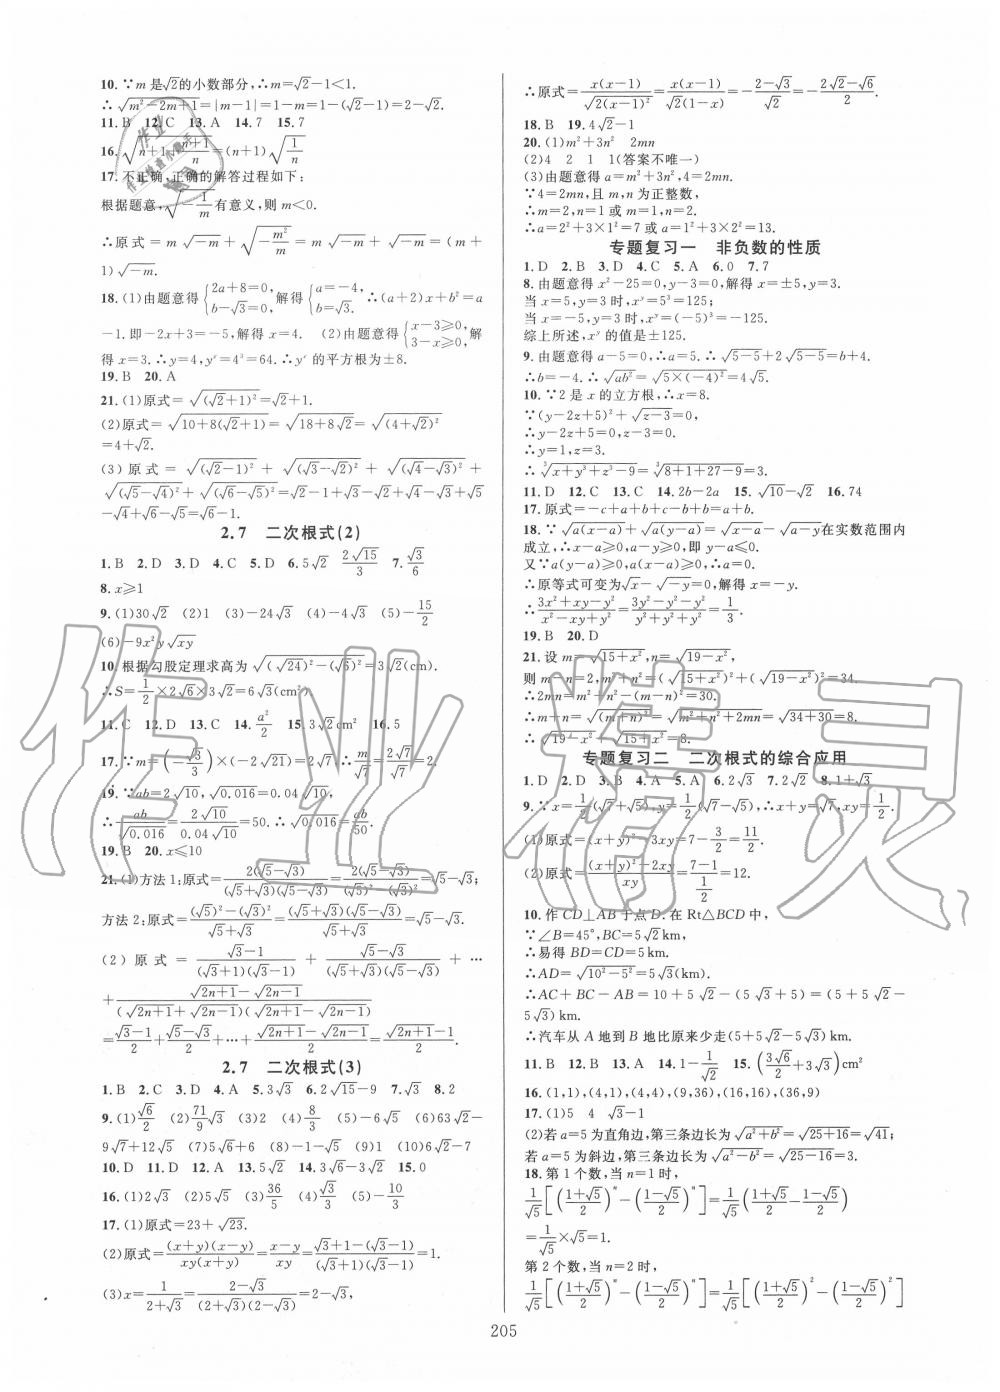 10.∵m是√2的小数部分,∴m=√2-1<1.
∴√(m²-2m+1)=|m-1|=1-m=1-(√2-1)=2-√2.
11.B 12.C 13.A 14.7 15.7
16.√(n+1/(n+1)...)=(n+1)√(1/n)
17.不正确,正确的解答过程如下:
根据题意,√(-1/m)有意义,则m<0.
∴原式=m√(-m)+√(-m²/m)=m√(-m)+√(-m)=(m+
1)√(-m).
18.(1)由题意得{2a+8=0, b-√3=0,解得{a=-4, b=√3.∴(a+2)x+b²=a
-1.即-2x+3=-5,解得x=4. (2)由题意得{x-3≥0, 3-x≥0,解
得x=3.∴y=4,yˣ=4³=64.∴yˣ的平方根为±8.
19.B 20.A
21.(1)原式=√((√2+1)²)=√2+1.
(2)原式=√(10+8(√2+1))=√(18+8√2)=√((4+√2)²)
=4+√2.
(3)原式=√((√2-1)²)+√((√3-√2)²)+√((√4-√3)²)+
√((√5-√4)²)+√((√6-√5)²)=√2-1+√3-√2+√4-√3+√5
-√4+√6-√5=√6-1.
2.7 二次根式(2)
1.B 2.D 3.D 4.C 5.D 6.5√2 2√15/3 7.√3/6
8.x≥1
9.(1)30√2 (2)1 (3)-24√3 (4)-4√3 (5)-15/2
(6)-9x²y√(xy)
10.根据勾股定理求高为√((√24)²-(√6)²)=3√2(cm).
∴S=1/2×2√6×3√2=6√3(cm²).
11.C 12.D 13.C 14.a²/2 15.3√2cm² 16.5
17.∵m=(-√3/3)×(-2√21)=2√7.∴m/√7=2√7/√7=2.
19.∵ab=2√10,√0.016=0.04√10,
∴ab/√0.016=2√10/(0.04√10)=50.∴ab/50=√0.016.
19.B 20.x≤10
21.(1)方法1:原式=2(√5-√3)/((√5+√3)(√5-√3))=2(√5-√3)/2=√5-√3;
方法2:原式=((√5)²-(√3)²)/(√5+√3)=(√5+√3)(√5-√3)/(√5+√3)=√5-√3.
(2)原式=(√3-1)/((√3+1)(√3-1))+(√5-√3)/((√5+√3)(√5-√3))+…
+(√(2n+1)-√(2n-1))/((√(2n+1)+√(2n-1))(√(2n+1)-√(2n-1)))
=(√3-1)/2+(√5-√3)/2+…+(√(2n+1)-√(2n-1))/2=(√(2n+1)-1)/2.
2.7 二次根式(3)
1.B 2.C 3.D 4.A 5.3√3 6.2√15-9 7.√3 8.2
9.(1)√6/2 (2)71/9√3 (3)2 (4)8/3 (5)-6√5 (6)63√2-
9√7+12√5 (7)5√6+6 (8)-1-√5 (9)1 (10)6√2-7
10.D 11.D 12.A 13.5√2 14.3√6-√3 15.0
16.(1)2√3 (2)5√5 (3)36/5 (4)√3/3 (5)-10/3
17.(1)原式=23+√23.
(2)原式=(x+y)(x-y)/(xy(x+y))=(x-y)/xy=(√3+1-(√3-1))/((√3+1)(√3-1))=1.
(3)x=1/(2+√3)=(2-√3)/((2+√3)(2-√3))=2-√3,
∴原式=x(x-1)/√(2(x-1)²)=x(x-1)/(√2(1-x))=-(2-√3)/√2=-(2√2-√6)/2.
18.B 19.4√2-1
20.(1)m²+3n² 2mn
(2)4 2 1 1(答案不唯一)
(3)由题意得a=m²+3n²,4=2mn.
∵4=2mn,且m,n为正整数,
∴m=2,n=1或m=1,n=2.
∴a=2²+3×1²=7或a=1²+3×2²=13.
专题复习一 非负数的性质
1.D 2.B 3.D 4.C 5.A 6.0 7.7
8.由题意得x²-25=0,y-3=0,解得x=±5,y=3.
当x=5,y=3时,xʸ=5³=125;
当x=-5,y=3时,xʸ=(-5)³=-125.
综上所述,xʸ的值是±125.
9.由题意得a-5=0,∴a=5.∴√(5-5)+2√(5-5)=b+4.
∴b=-4.∴√(ab²)=√(5×(-4)²)=4√5.
10.∵2是x的立方根,∴x=8.
∵(y-2z+5)²+√(z-3)=0,
∴y-2z+5=0,z-3=0,
∴y=1,z=3.
∴³√(x+y³+z³-9)=³√(8+1+27-9)=3.
11.D 12.C 13.C 14.2b-2a 15.√10-√2 16.74
17.原式=-c+a+b+c-b+b=a+b.
18.∵√(a(x-a))+√(a(y-a))=√(x-a)-√(a-y)在实数范围内
成立,∴x-a≥0,a-y≥0,即y-a≤0.
又∵a(y-a)≥0,a(x-a)≥0,∴a=0,
∴原等式可变为√x-√(-y)=0,解得x=-y.
∴(3x²+xy-y²)/(x²-xy+y²)=(3y²-y²-y²)/(y²+y²+y²)=1/3.
19.B 20.D
21.设m=√(15+x²),n=√(19-x²),
则m²+n²=(√(15+x²))²+(√(19-x²))²=34.
∴2mn=m²+n²-(m-n)²=30.
∴m+n=√((m+n)²)=√(m²+n²+2mn)=√(34+30)=8.
∴√(19-x²)+√(15+x²)=8.
专题复习二 二次根式的综合应用
1.D 2.D 3.B 4.A 5.A 6.2√3 7.2√2 8.1+√3
9.∵x=1/2(√7+√5),y=1/2(√7-√5),∴x+y=√7,xy=1/2.
(1)原式=(x+y)²-3xy=7-3/2=11/2.
(2)原式=((x+y)²-2xy)/xy=(7-1)/(1/2)=12.
10.作CD⊥AB于点D.在Rt△BCD中,
∵∠B=45°,BC=5√2km,
∴易得BD=CD=5km.
∴AD=√(10²-5²)=5√3(km).
∴AC+BC-AB=10+5√2-(5√3+5)=(5+5√2-
5√3)km.
∴汽车从A地到B地比原来少走(5+5√2-5√3)km.
11.B 12.B 13.A 14.1-1/√2 15.(3√6/2+3√3)cm²
16.(1,1),(4,1),(4,4),(9,36),(16,16),(36,9)
17.(1)5 4 √3-1
(2)若a=5为直角边,第三条边长为√(a²+b²)=√(25+16)=√41;
若a=5为斜边,第三条边长为√(a²-b²)=√(25-16)=3.
18.第1个数,当n=1时,
1/√5[((1+√5)/2)ⁿ-((1-√5)/2)ⁿ]=1/√5((1+√5)/2-(1-√5)/2)
=1/√5×√5=1.
第2个数,当n=2时,
1/√5[((1+√5)/2)ⁿ-((1-√5)/2)ⁿ]=1/√5[((1+√5)/2)²-((1-√5)/2)²]
205
作业精灵